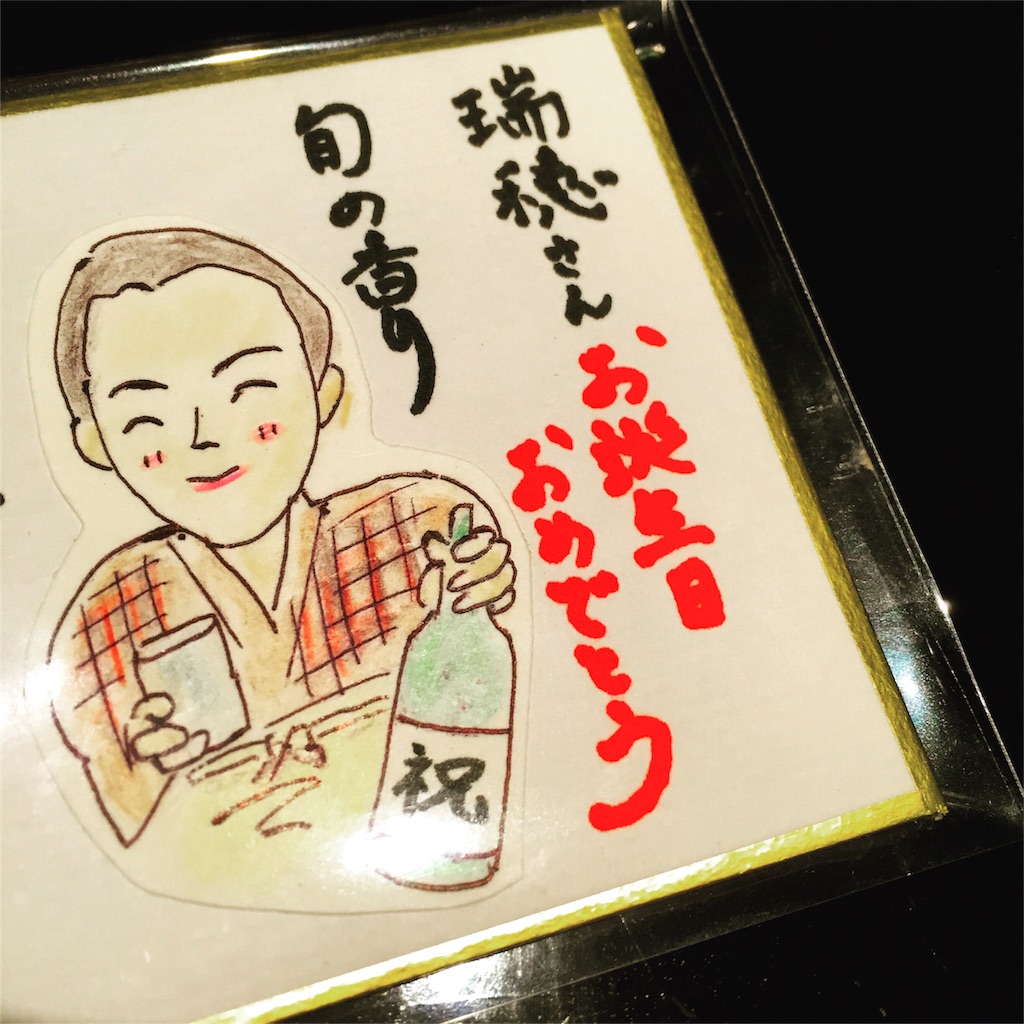 瑞穂さん
お誕生日
おめでとう
旬の香り
祝